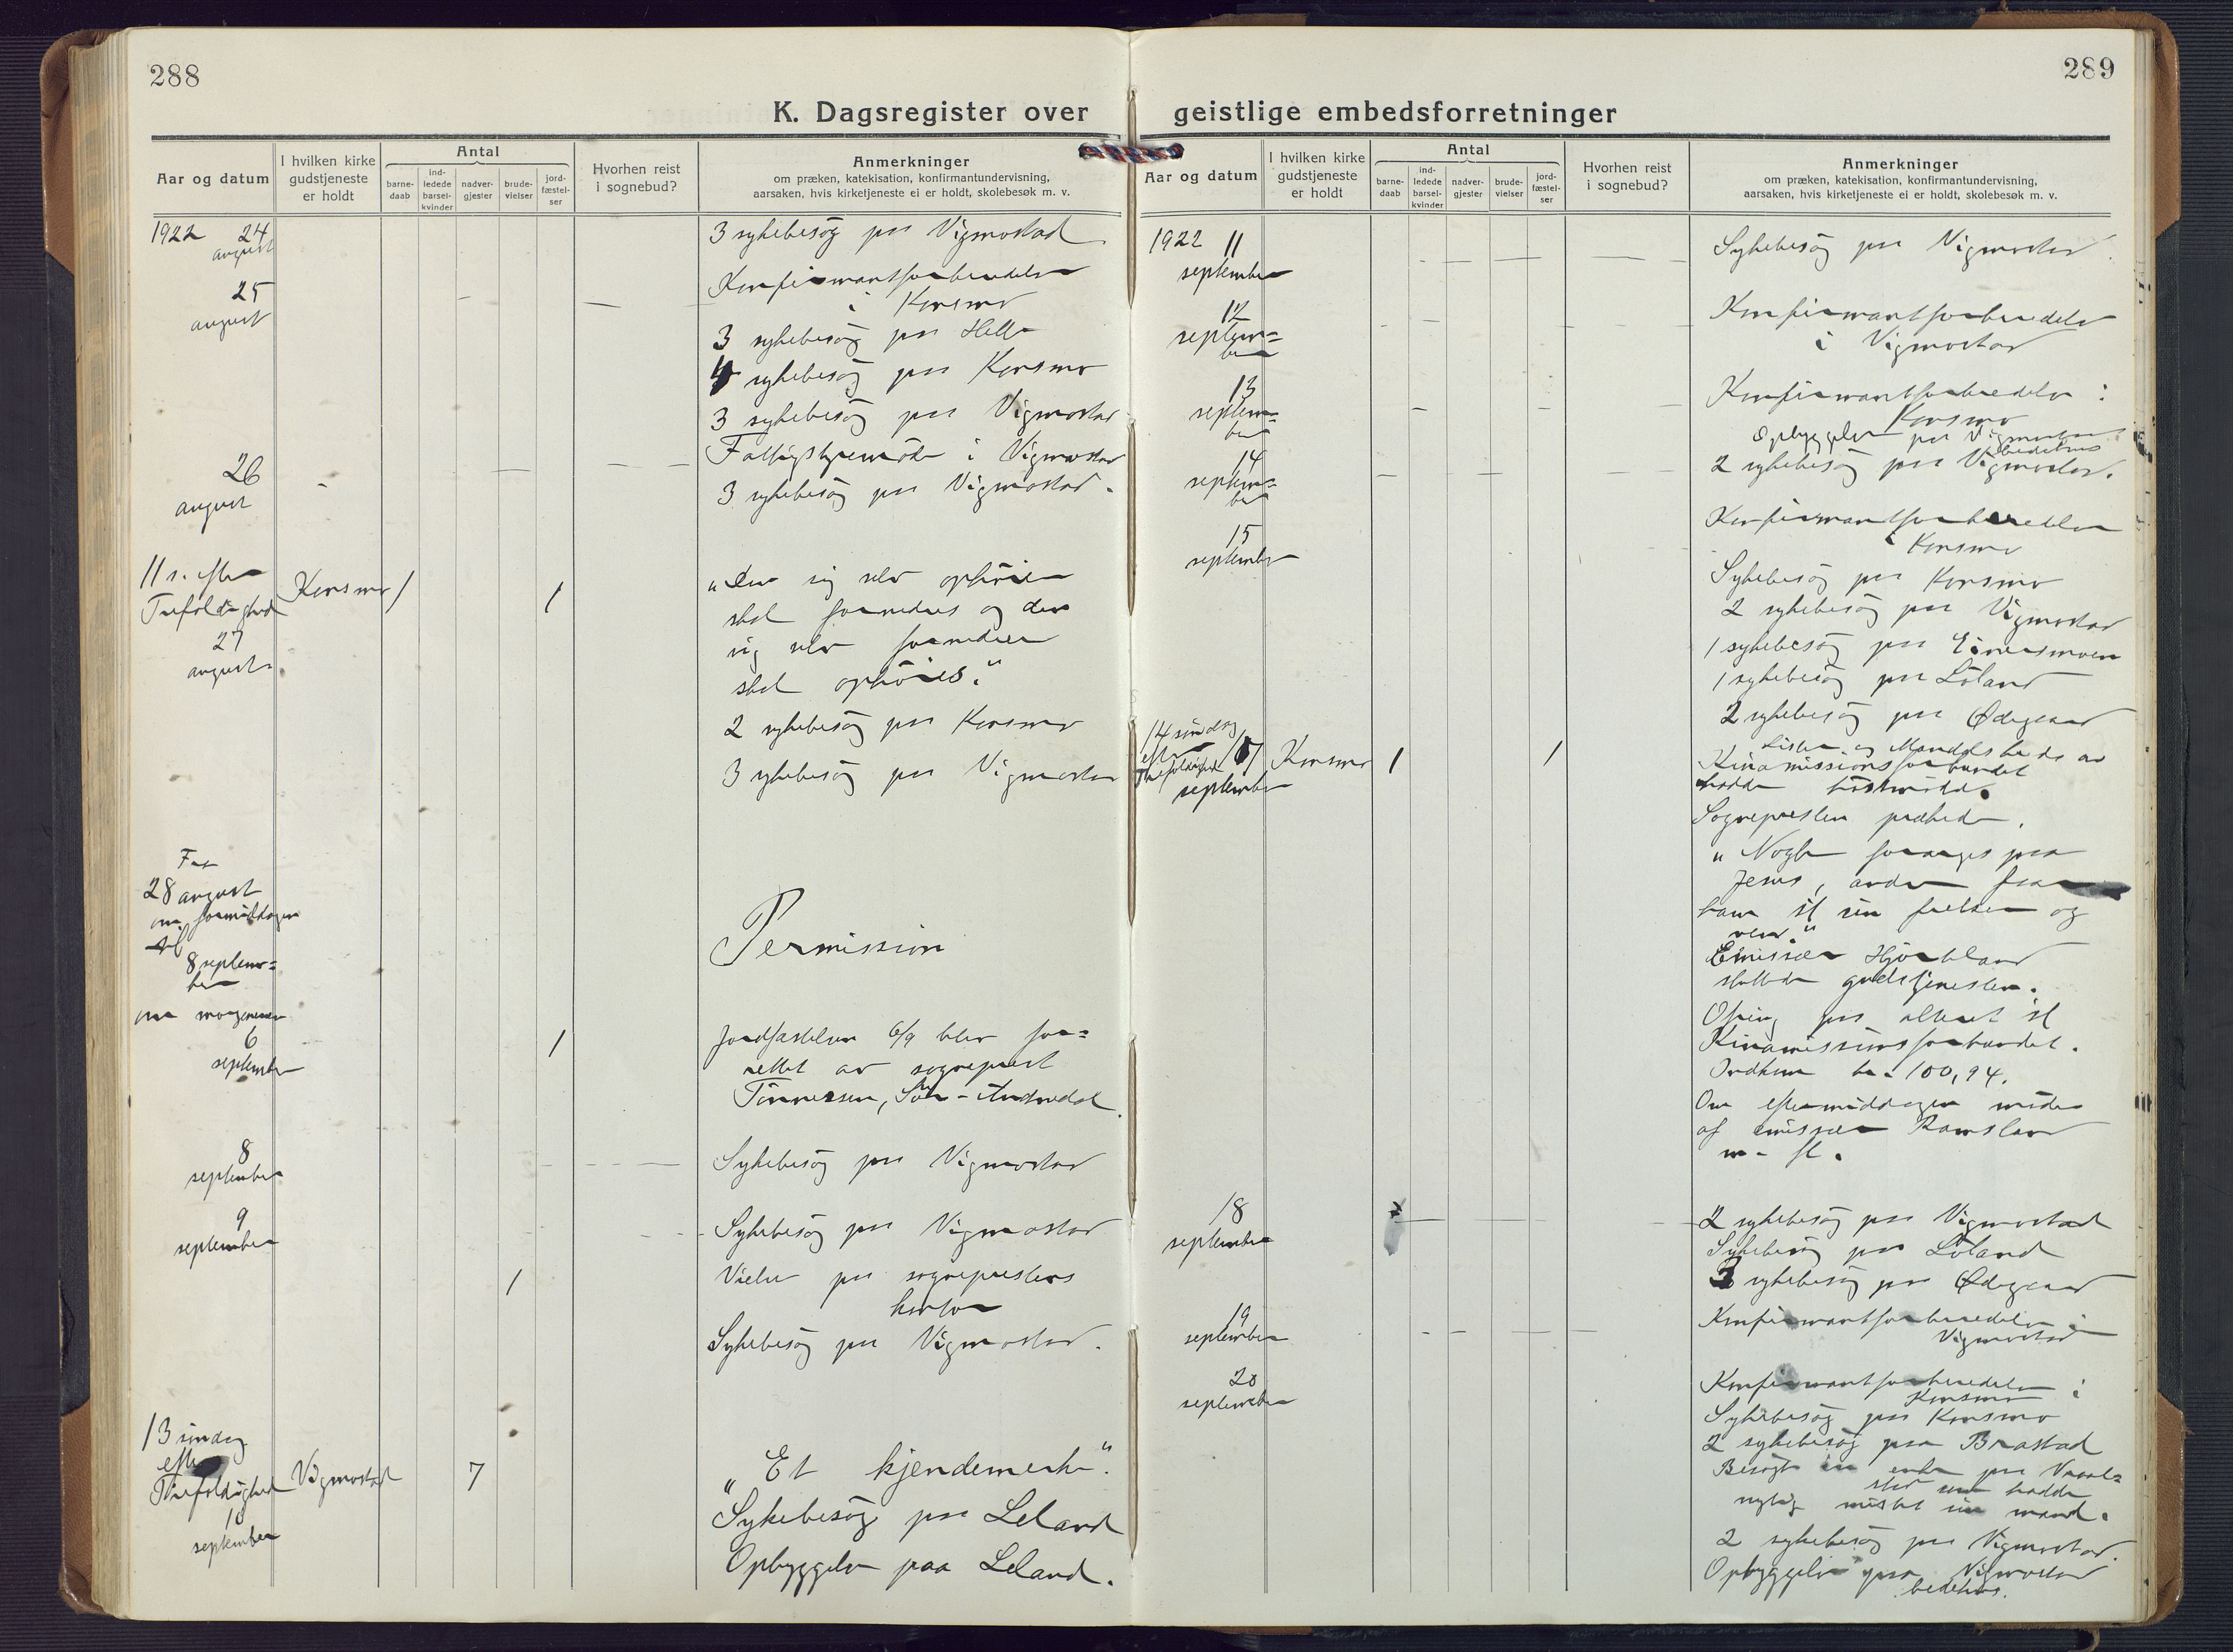 288
K. Dagsregister over
Aar og datum
I hvilken kirke
gudstjeneste
er holdt
Antal
barne-
daab
ind-
ledede
barsel-
kvinder
nadver-
gjester
brude-
vielser
jord-
fæstel-
ser
Hvorhen reist
i sognebud?
Anmerkninger
om præken, katekisation, konfirmantundervisning,
aarsaken, hvis kirketjeneste ei er holdt, skolebesøk m. v.
1922 24
august
3 sykebesøg paa Vigmostad
25
august
Konfirmantforberedelse
i Konsmo
3 sykebesøg paa Helle
4 sykebesøg paa Konsmo
3 sykebesøg paa Vigmostad
Fattigstyremøte i Vigmostad
26
august
3 sykebesøg paa Vigmostad.
11 s. efter
Trefoldighed
27
august
Konsmo 1 1
"Den sig selv ophøier
skal fornedres og den
sig selv fornedrer
skal ophøies."
2 sykebesøg paa Konsmo
3 sykebesøg paa Vigmostad
Fra
28 august
om formiddagen
til
8 septem=
ber
om morgenen
Permission
6
september
1
Jordfæstelsen 6/9 blev for=
rettet av sogneprest
Tönnessen, Sör-Audnedal.
8
september
Sykebesøg paa Vigmostad
9
september
Sykebesøg paa Vigmostad
1
Vielse paa sogneprestens
kontor
Sykebesøg paa Vigmostad.
13 søndag
efter
Trefoldighed
10
september
Vigmostad 7
"Et kjendemerke."
Sykebesøg paa Leland
Opbyggelse paa Leland.
289
geistlige embedsforretninger
Aar og datum
I hvilken kirke
gudstjeneste
er holdt
Antal
barne-
daab
ind-
ledede
barsel-
kvinder
nadver-
gjester
brude-
vielser
jord-
fæstel-
ser
Hvorhen reist
i sognebud?
Anmerkninger
om præken, katekisation, konfirmantundervisning,
aarsaken, hvis kirketjeneste ei er holdt, skolebesøk m. v.
1922 11
september
Sykebesøg paa Vigmostad.
12
septem=
ber
Konfirmantforberedelse
i Vigmostad
13
septem=
ber
Konfirmantforberedelse i
Konsmo
Opbyggelse paa Vigmostad
bedehus
14
septem=
ber
2 sykebesøg paa Vigmostad.
15
september
Konfirmantforberedelse
i Konsmo
Sykebesøg paa Konsmo
2 sykebesøg paa Vigmostad
1 sykebesøg paa Eimersmoen
1 sykebesøg paa Löland
2 sykebesøg paa Ødegaard
14 søndag
efter
Trefoldighed 17
september
Konsmo 1 1
Lister og Mandals kreds av
Kinamissionsforbundet
hadde höstmöte.
Sognepresten prækede.
"Nogle forarges paa
Jesus, andre faar
ham til sin frelser og
ven."
Emissær Hjorteland
sluttede gudstjenesten.
Ofring paa alteret til
Kinamissionsforbundet.
Indkom kr. 100,94.
Om eftermiddagen møde
af emissær Ramsland
m. fl.
18
september
2 sykebesøg paa Vigmostad
Sykebesøg paa Löland
3 sykebesøg paa Ødegaard
19
september
Konfirmantforberedelse i
Vigmostad
20
september
Konfirmantforberedelse i
Konsmo
Sykebesøg paa Konsmo
2 sykebesøg paa Brastad
Besøgte en enke paa
som hadde
nylig mistet sin mand.
2 sykebesøg paa Vigmostad.
Opbyggelse paa Vigmostad
bedehus.